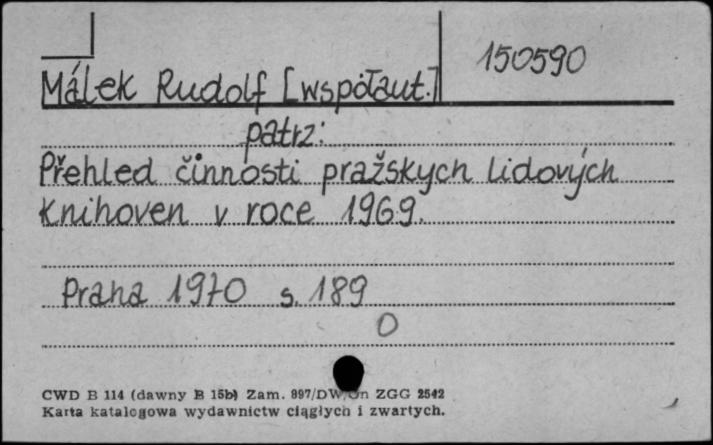 150590
Málek Rudolf [współaut.]
patrz:
Přehled činnosti pražskych lidových
knihoven v roce 1969.
Praha 1970 s. 189
0
CWD B 114 (dawny B 15b) Zam. 897/DW/On ZGG 2542
Karta katalogowa wydawnictw ciągłych i zwartych.